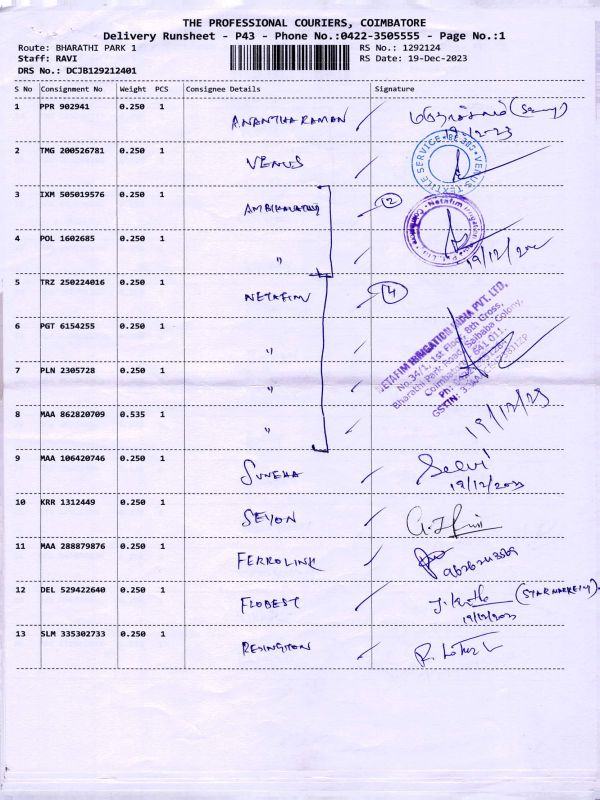 THE PROFESSIONAL COURIERS, COIMBATORE
Delivery Runsheet - P43 - Phone No.:0422-3505555 - Page No.:1
Route: BHARATHI PARK 1
Staff: RAVI
DRS No.: DCJB129212401
RS No.: 1292124
RS Date: 19-Dec-2023
S No Consignment No Weight PCS Consignee Details Signature
1 PPR 902941 0.250 1 ANANTHARAMAN
19/12-23
2 TMG 200526781 0.250 1 VENUS
VENUS TEXTILE SERVICE
3 IXM 505019576 0.250 1 (2)
Netafim Irrigation
4 POL 1602685 0.250 1 "
19/12/
5 TRZ 250224016 0.250 1 NETAFIM (4)
NETAFIM IRRIGATION INDIA PVT. LTD.
No.34/1, 1st Floor, 8th Cross,
Bharathi Park Road, Saibaba Colony,
Coimbatore 641 011.
Ph:
GSTIN:
6 PGT 6154255 0.250 1 "
7 PLN 2305728 0.250 1 "
8 MAA 862820709 0.535 1 "
19/12/23
9 MAA 106420746 0.250 1 SUNEHA Selvi
19/12/2023
10 KRR 1312449 0.250 1 SEYON
11 MAA 288879876 0.250 1 FERROLINK
12 DEL 529422640 0.250 1 FLOBEST
19/12/2023
13 SLM 335302733 0.250 1 REDINGTON